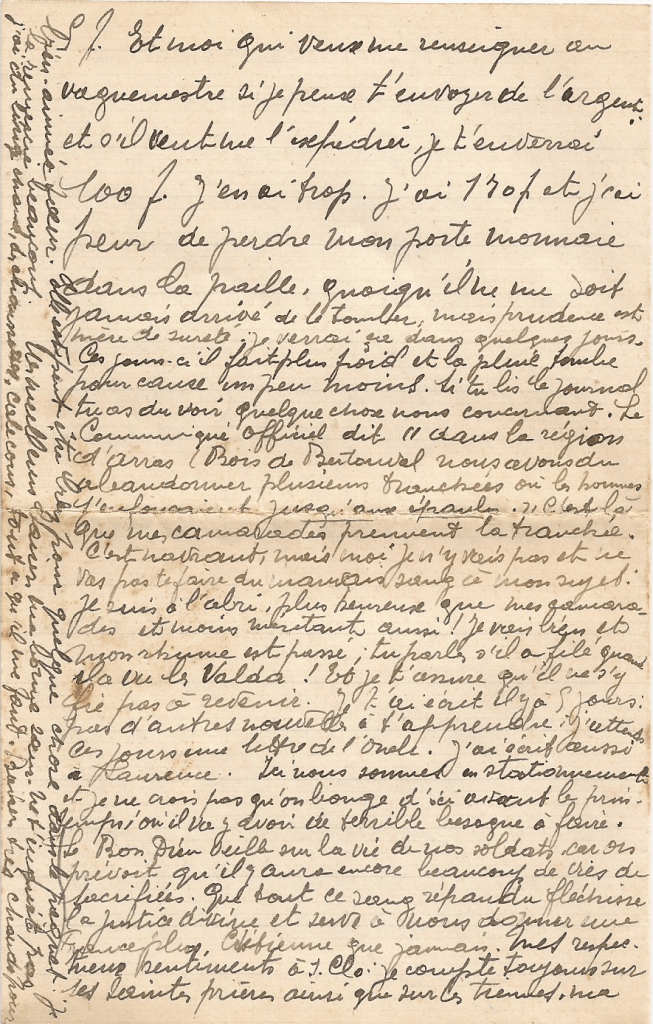 5 f. Et moi qui veux me renseigner au
vaguemestre si je peux t'envoyer de l'argent
et s'il veut me l'expédier, je t'enverrai
100 f. J'en ai trop. J'ai 170 f et j'ai
peur de perdre mon porte monnaie
dans la paille, quoiqu'il ne me soit
jamais arrivé de le tomber, mais prudence est
mère de sureté. Je verrai ça dans quelques jours.
Ces jours-ci il fait plus froid et la pluie tombe
pour cause un peu moins. Si tu lis le journal
tu as du voir quelque chose nous concernant. Le
Communiqué Officiel dit "dans la région
d'Arras (Bois de Berthonval nous avons du
abandonner plusieurs tranchées où les hommes
s'enfonçaient jusqu'aux épaules." C'est là
que mes camarades prennent la tranchée.
C'est navrant, mais moi je n'y vais pas et ne
vas pas te faire du mauvais sang à mon sujet.
Je suis à l'abri, plus heureuse que mes camara-
des et moins méritant aussi! Je vais bien et
mon rhume est passé, tu parles s'il a filé quand
il a vu les Valda! Et je t'assure qu'il ne s'y
fie pas à revenir. Je t'ai écrit il y a 5 jours.
pas d'autres nouvelles à t'apprendre. J'attends
ces jours une lettre de l'Oncle. J'ai écrit aussi
à Laurence. Ici nous sommes en stationnement
et je ne crois pas qu'on bouge d'ici avant le prin-
temps où il va y avoir de terrible besogne à faire.
Le Bon Dieu veille sur la vie de nos soldats, car on
prévoit qu'il y aura encore beaucoup de vies de
sacrifiées. Que tout ce sang répandu fléchisse
la justice divine et serve à nous donner une
France plus chrétienne que jamais. Mes respec-
tueux sentiments à S. Clo. Je compte toujours sur
ses saintes prières ainsi que sur les tiennes, ma
bien aimée sœur. Elle est peut être pour quelque chose dans le paquet: je
la remercie beaucoup. Un meilleur baiser ma bonne sœur. Ne t'inquiète pas
j'ai du linge chaud, des chaussettes, caleçons, tout ce qu'il me faut. Baisers très chauds pour